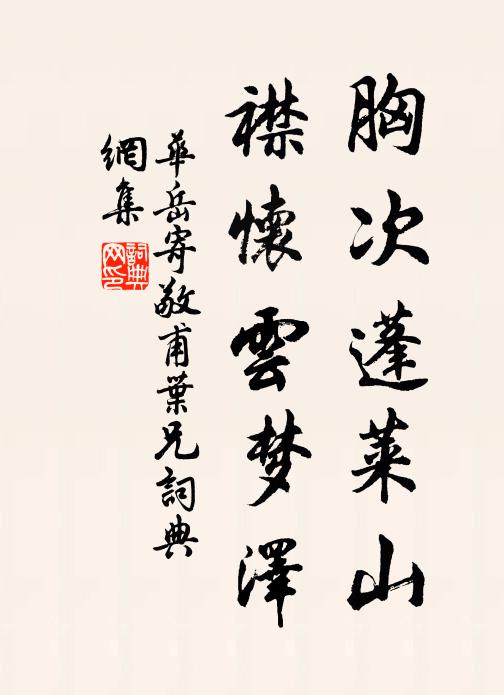 胸次蓬莱山
襟懷雲梦澤
華岳寄敬甫葉兄詞典
網集
詞典
网印